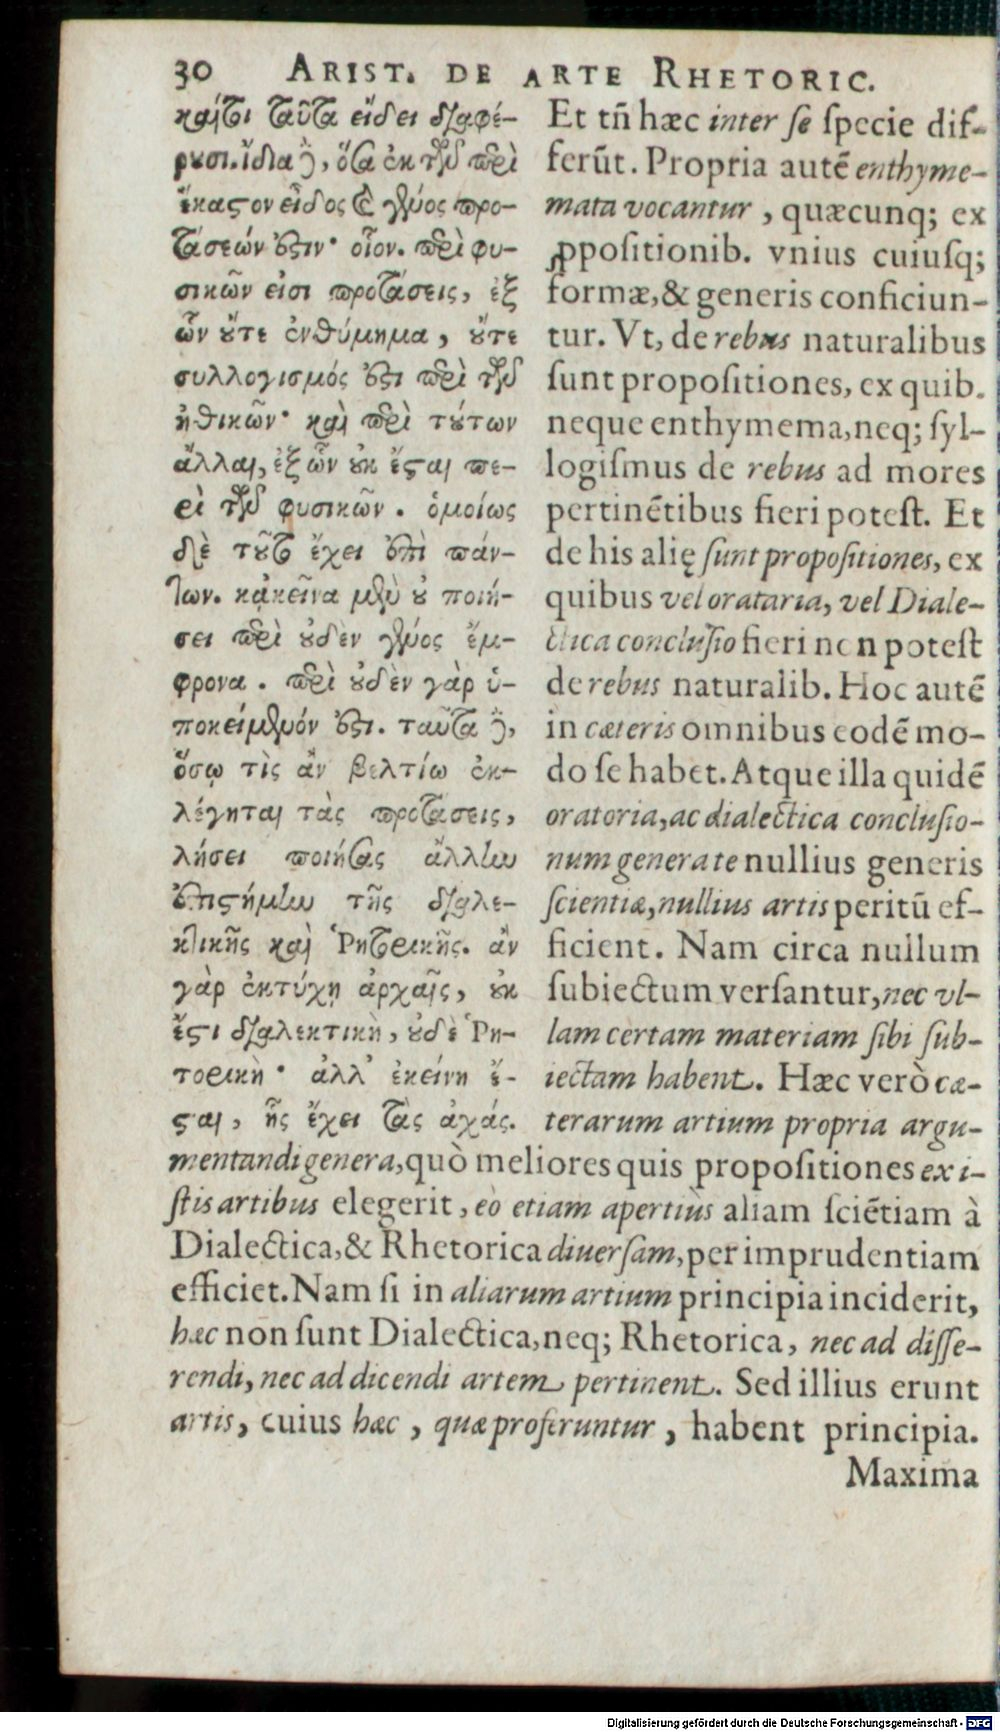 30 ARIST. DE ARTE RHETORIC.
καίτοι ταῦτα εἴδει διαφέ-
ρουσι. ἴδια δὲ, ὅσα ἐκ τῶν περὶ
ἕκαστον εἶδος καὶ γένος προ-
τάσεών ἐστιν· οἷον. περὶ φυ-
σικῶν εἰσι προτάσεις, ἐξ
ὧν οὔτε ἐνθύμημα, οὔτε
συλλογισμός ἐστι περὶ τῶν
ἠθικῶν· καὶ περὶ τούτων
ἄλλαι, ἐξ ὧν οὐκ ἔσται πε-
ρὶ τῶν φυσικῶν. ὁμοίως
δὲ τοῦτο ἔχει ἐπὶ πάν-
των. κἀκεῖνα μὲν οὐ ποιή-
σει περὶ οὐδὲν γένος ἔμ-
φρονα. περὶ οὐδὲν γὰρ ὑ-
ποκείμενόν ἐστι. ταῦτα δὲ,
ὅσῳ τὶς ἂν βελτίω ἐκ-
λέγηται τὰς προτάσεις,
λήσει ποιήσας ἄλλην
ἐπιστήμην τῆς διαλε-
κτικῆς καὶ Ῥητορικῆς. ἂν
γὰρ ἐκτύχῃ ἀρχαῖς, οὐκ
ἔστι διαλεκτικὴ, οὐδὲ Ῥη-
τορικὴ· ἀλλ' ἐκείνη ἔ-
σται, ἧς ἔχει τὰς ἀχάς.
Et tñ hæc inter se specie dif-
ferũt. Propria autẽ enthyme-
mata vocantur, quæcunq; ex
ꝓpositionib. vnius cuiusq;
formæ, & generis conficiun-
tur. Vt, de rebus naturalibus
sunt propositiones, ex quib.
neque enthymema, neq; syl-
logismus de rebus ad mores
pertinẽtibus fieri potest. Et
de his alię sunt propositiones, ex
quibus vel orataria, vel Diale-
ctica conclusio fieri non potest
de rebus naturalib. Hoc autẽ
in cæteris omnibus eodẽ mo-
do se habet. Atque illa quidẽ
oratoria, ac dialectica conclusio-
num genera te nullius generis
scientiæ, nullius artis peritũ ef-
ficient. Nam circa nullum
subiectum versantur, nec vl-
lam certam materiam sibi sub-
iectam habent. Hæc verò cæ-
terarum artium propria argu-
mentandi genera, quò meliores quis propositiones ex i-
stis artibus elegerit, eò etiam apertiùs aliam sciẽtiam à
Dialectica, & Rhetorica diuersam, per imprudentiam
efficiet. Nam si in aliarum artium principia inciderit,
hæc non sunt Dialectica, neq; Rhetorica, nec ad disse-
rendi, nec ad dicendi artem pertinent. Sed illius erunt
artis, cuius hæc, quæ proferuntur, habent principia.
Maxima
Digitalisierung gefördert durch die Deutsche Forschungsgemeinschaft - DFG